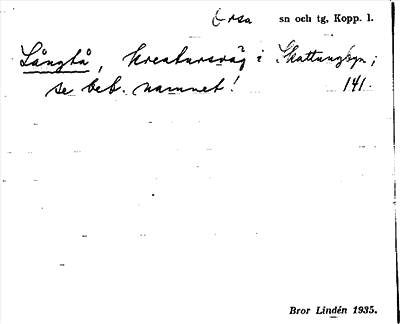 Orsa sn och tg, Kopp. l.
Långtå, kreatursväg i Skattungbyn;
se bet. namnet! 141.
Bror Lindén 1935.